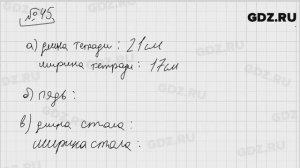 GDZ.RU
№45.
а) длина тетради: 21 см
ширина тетради: 17 см
б) пядь:
в) длина стола:
ширина стола:
GDZ.RU